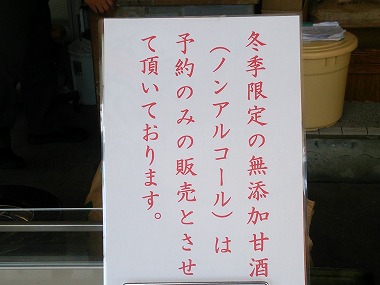 冬季限定の無添加甘酒
（ノンアルコール）は
予約のみの販売とさせ
て頂いております。